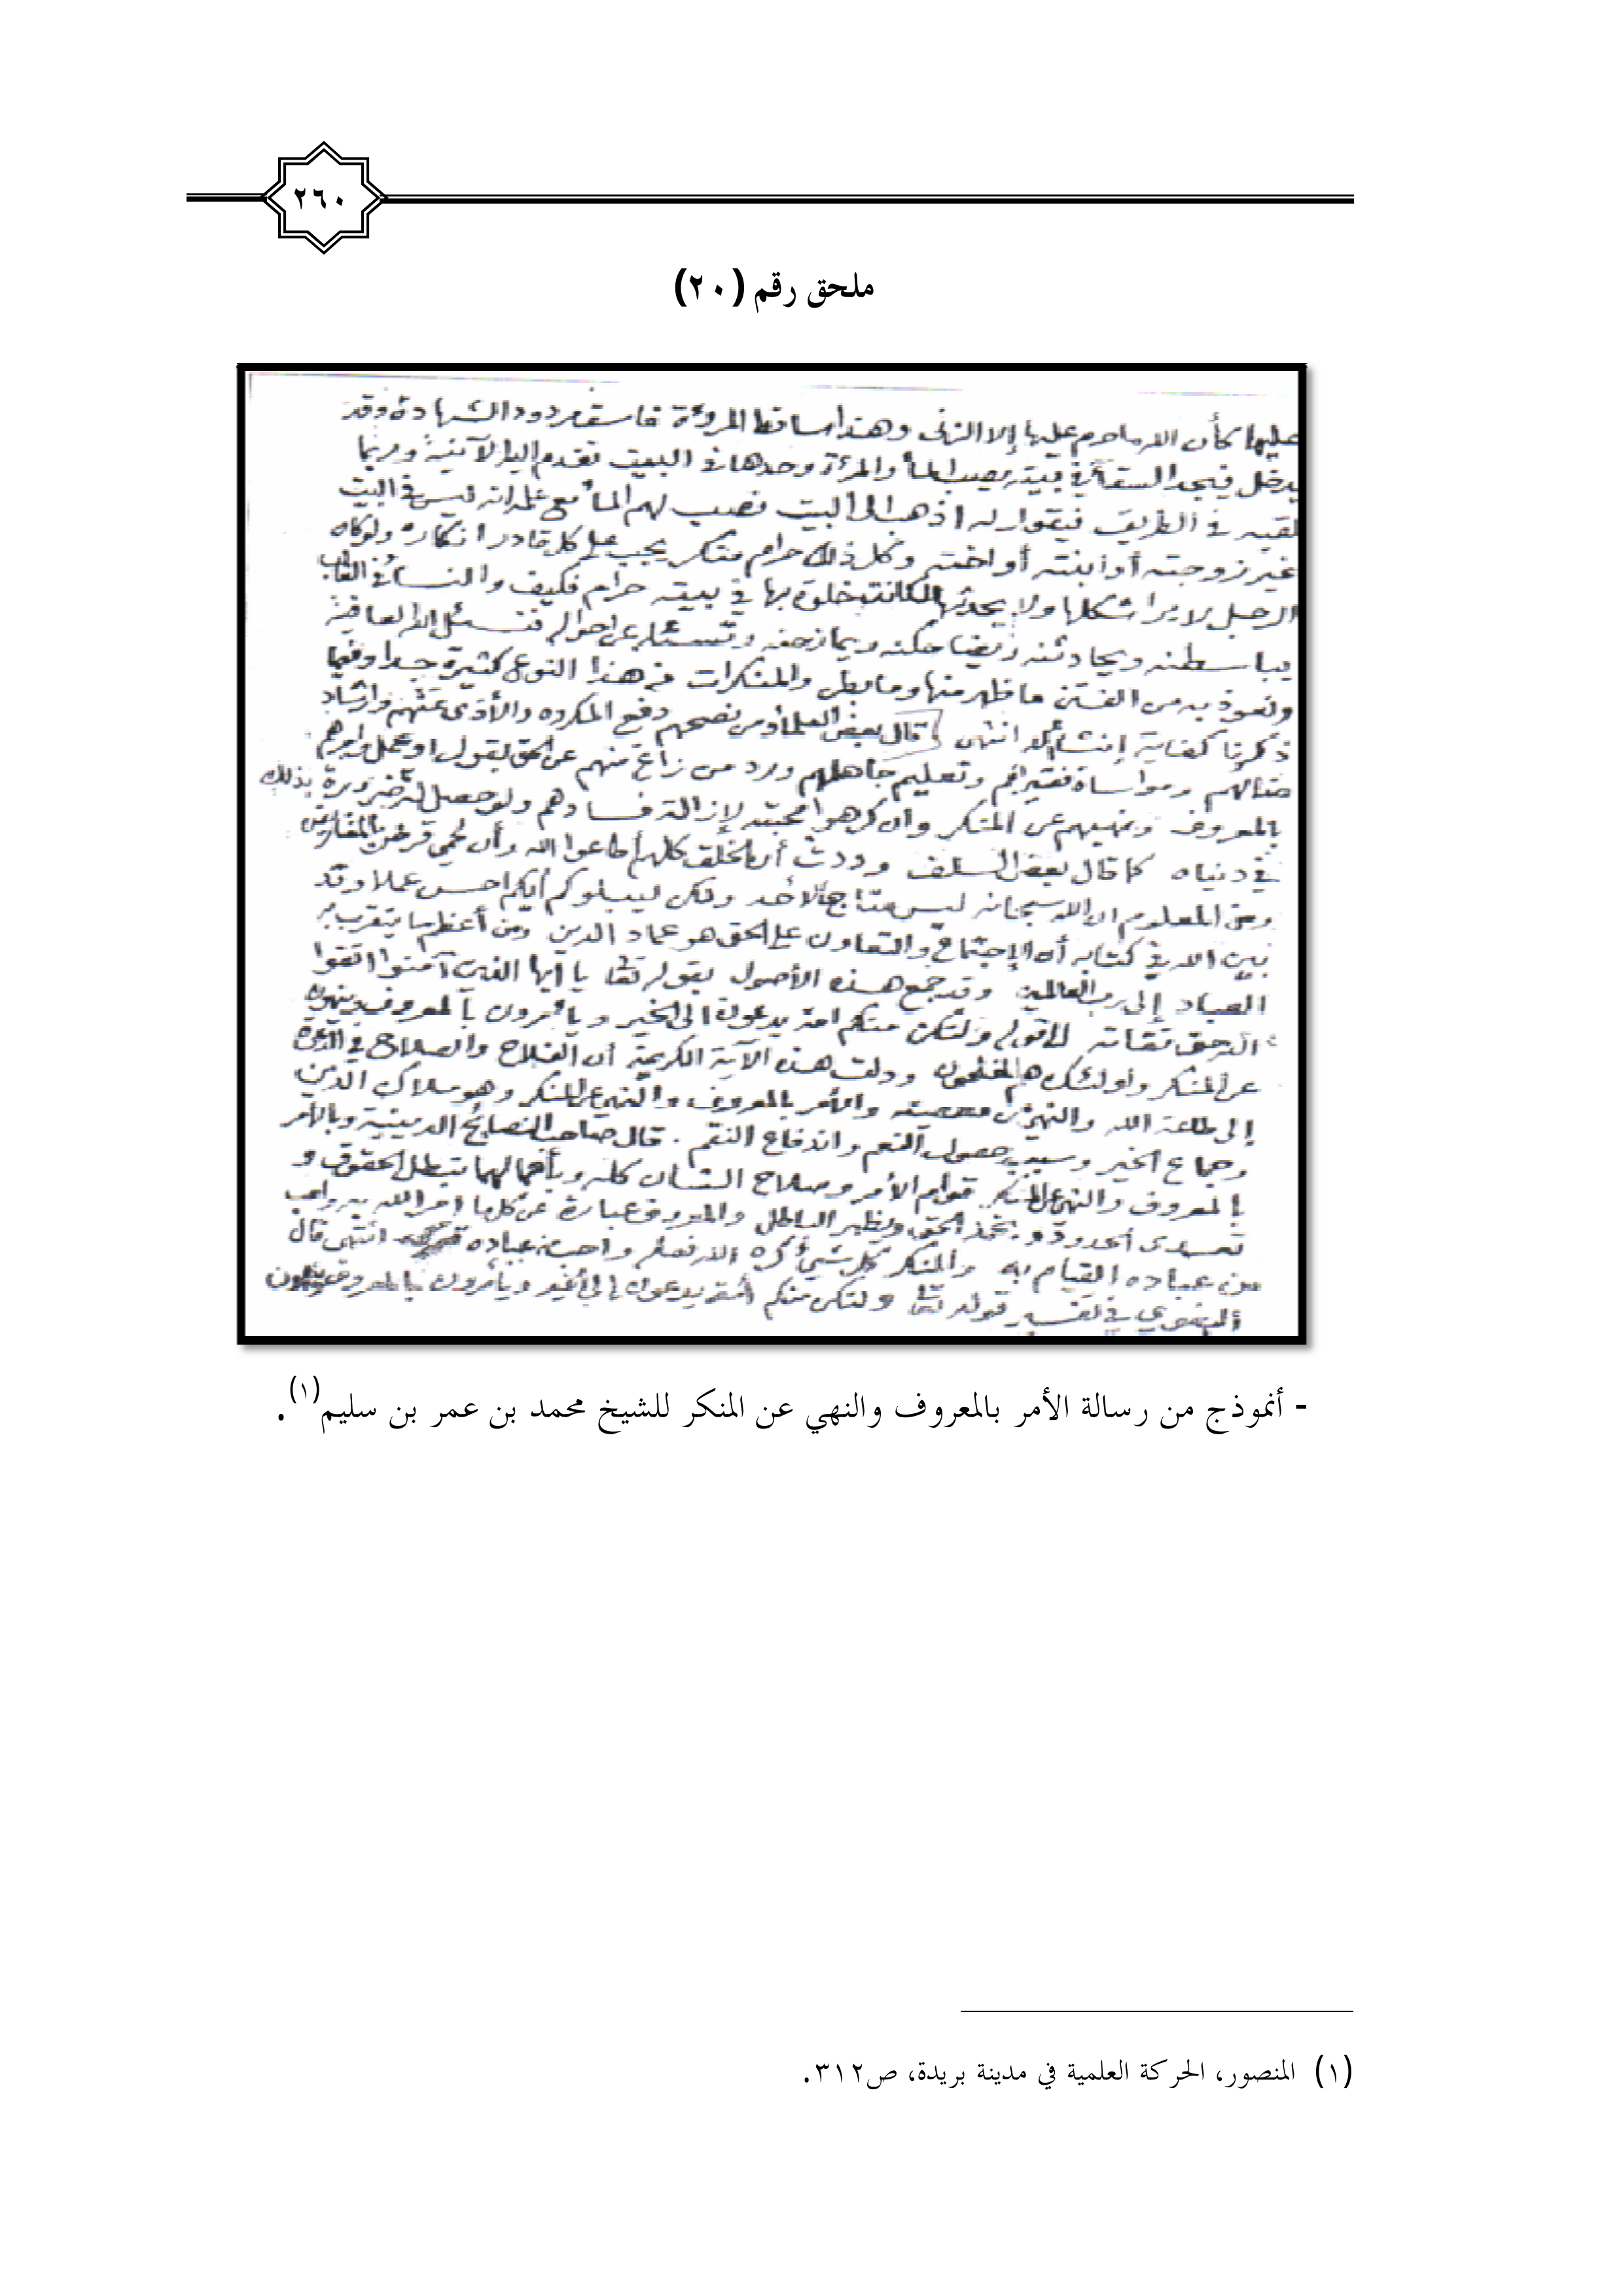 ٢٦٠
ملحق رقم (٢٠)
عليها كأن الله ما حرم عليها إلا الزنى وهذا ساقط المروءة فاسق مردود الشهادة وقد
يدخل فيجد السقاء في بيته يصب الماء والمرءة وحدها في البيت تقدم إليه الآنية وربما
لقيه في الطريق فيقول له اذهب إلى البيت فصب لهم الماء مع علمه انه ليس في البيت
غير زوجته أو ابنته أو اخته وكل ذلك حرام منكر يجب على كل قادر انكاره ولو كان
الرجل لا يرا شكلها ولا يحدثها لكانت خلوته بها في بيته حرام فكيف والنساء في الغالب
يباسطنه ويحادثنه ويضاحكنه ويمازحنه عن احواله فنسئل الله العافية
ونعوذ به من الفتن ما ظهر منها وما بطن والمنكرات من هذا النوع كثيرة جدا وفيما
ذكرنا كفاية إنشاء الله انتهى قال بعض العلماء ومن نصحهم دفع المكروه والأذى عنهم وارشاد
ضالهم ومواساة فقيرهم وتعليم جاهلهم ورد من زاغ منهم عن الحق بقول او عمل وامرهم
بالمعروف ونهيهم عن المنكر وان كرهوا محبته لإزالة فسادهم ولو حصل له ضرورة بذلك
في دنياه كما قال بعض السلف وددت أن الخلق كلهم أطاعوا الله وأن لحمي قرض بالمقاريض
ومن المعلوم ان الله سبحانه ليس محتاج لأحد ولكن ليبلوكم أيكم احسن عملا وقد
بين الله في كتابه أن الإجتماع والتعاون على الحق هو عماد الدين ومن أعظم ما يتقرب به
العباد إلى رب العالمين وقد جمع هذه الأصول بقوله تعا يا أيها الذين آمنوا اتقوا
الله حق تقاته إلى قوله ولتكن منكم امة يدعون الى الخير ويأمرون بالمعروف وينهون
عن المنكر وأولئك هم المفلحون ودلت هذه الآية الكريمة أن الفلاح والصلاح في الدعوة
إلى طاعة الله والنهي عن معصيته والأمر بالمعروف والنهي عن المنكر وهو ملاك الدين
وجماع الخير وسبب حصول النعم واندفاع النقم. قال صاحب النصائح الدينية وبالأمر
بالمعروف والنهي عن المنكر قوام الأمر وصلاح الشان كله وبأهمالهما تبطل الحقوق و
تعدى الحدود و يخمد الحق ويظهر الباطل والمعروف عبارة عن كلما امر الله به واحب
من عباده القيام به والمنكر كل شيء كره الله فعله واحب من عباده انتهى قال
البغوي في تفسير قوله تعا ولتكن منكم أمة يدعون إلى الخير ويأمرون بالمعروف وينهون
- أنموذج من رسالة الأمر بالمعروف والنهي عن المنكر للشيخ محمد بن عمر بن سليم(١).
(١) المنصور، الحركة العلمية في مدينة بريدة، ص٣١٢.